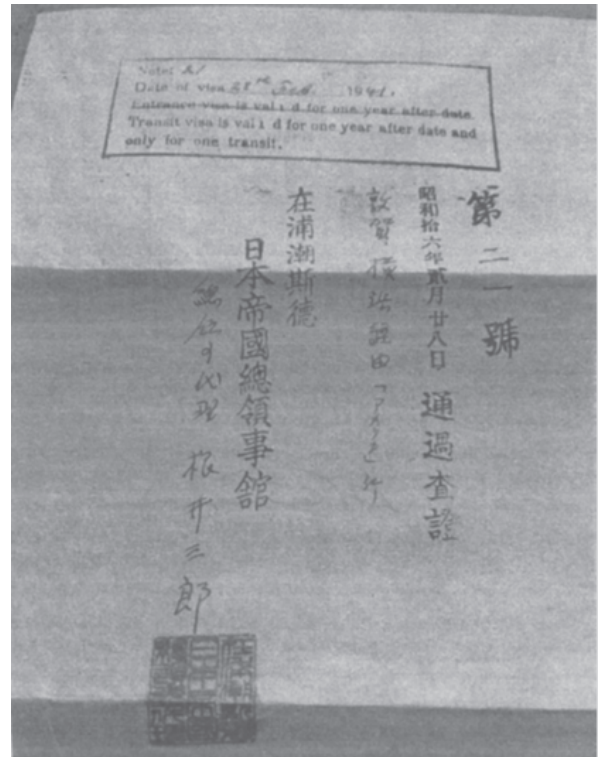 Notes 21
Date of visa 28th Feb. 1941.
Entrance visa is valid for one year after date.
Transit visa is valid for one year after date and
only for one transit.
第二一號
昭和拾六年貳月廿八日 通過査證
敦賀 橫濱經由「アメリカ」行
在浦潮斯德
日本帝國總領事館
總領事代理 根井三郎